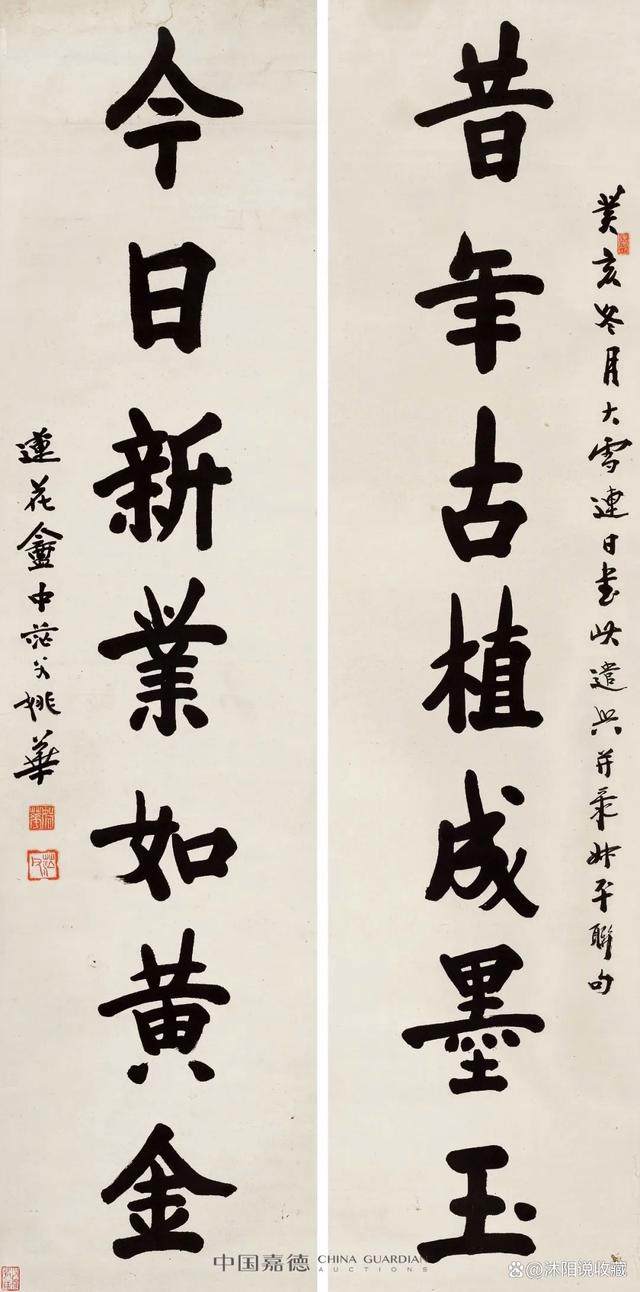 癸亥冬月大雪連日書此遣興并聯句
昔年古植成墨玉
今日新業如黄金
蓮花盦中茫父姚華
中国嘉德 CHINA GUARDIAN
AUCTIONS
@沐阳说收藏